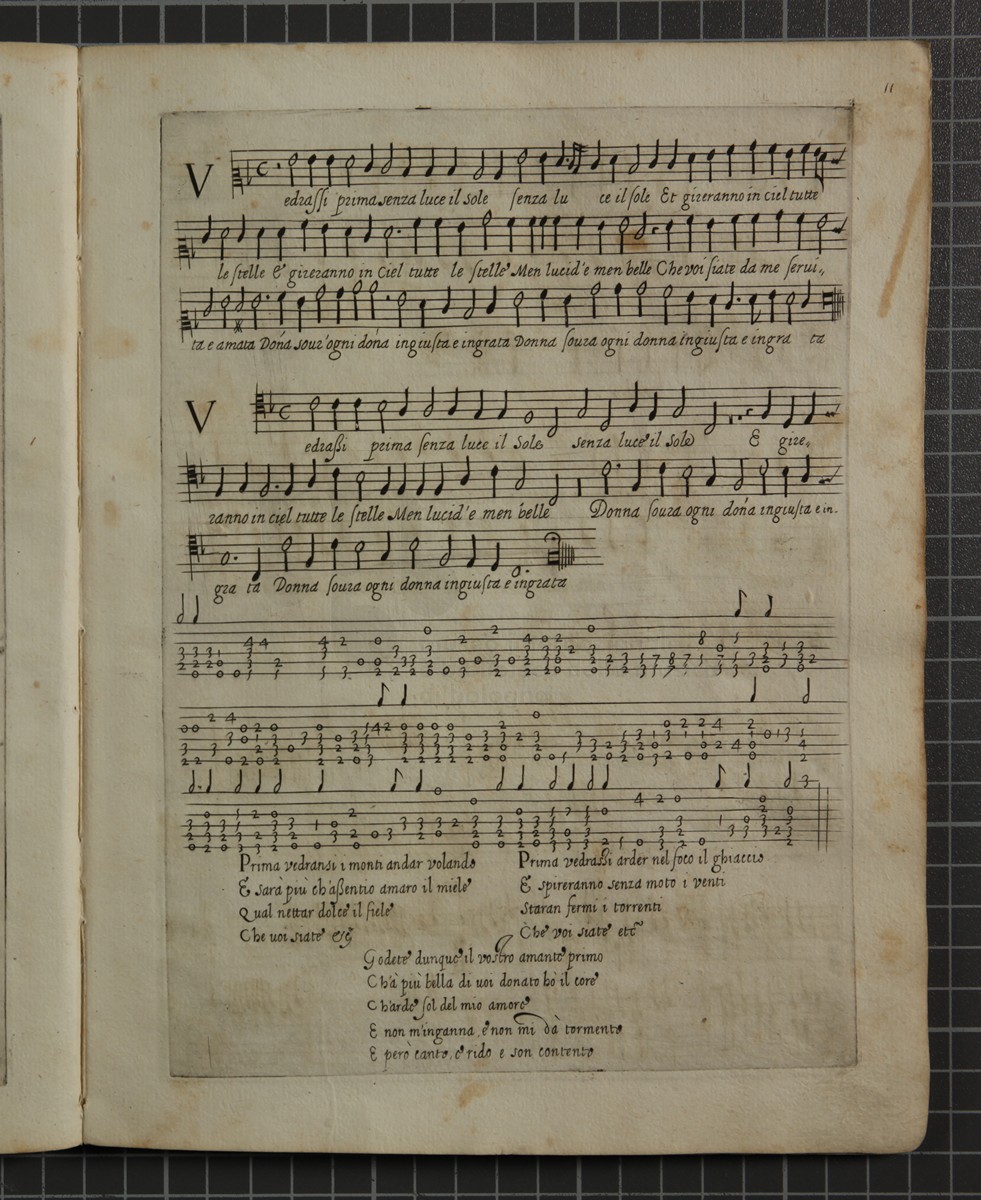 11
Vedrassi prima senza luce il sole senza lu ce il sole Et gireranno in ciel tutte
le stelle E gireranno in Ciel tutte le stelle Men lucid'e men belle Che voi siate da me serui,,
ta e amata Dōna sour'ogni dōna ingiusta e ingrata Donna soura ogni donna ingiusta e ingra ta
Vedraßi prima senza luce il Sole senza luce il Sole E gire,,
ranno in ciel tutte le stelle Men lucid'e men belle Donna soura ogni dōna ingiusta e in.
gra ta Donna soura ogni donna ingiusta e ingrata
Prima vedransi i monti andar volando
E sarà più ch'aßentio amaro il miele
Qual nettar dolce il fiele
Che uoi siate etc
Prima vedraßi arder nel foco il ghiaccio
E spireranno senza moto i venti
Staran fermi i torrenti
Che voi siate etc
Godete dunque il vostro amante primo
Ch'à più bella di uoi donato hò il core
Ch'arde sol del mio amore
E non m'inganna, e non mi dà tormento
E però canto, e rido e son contento